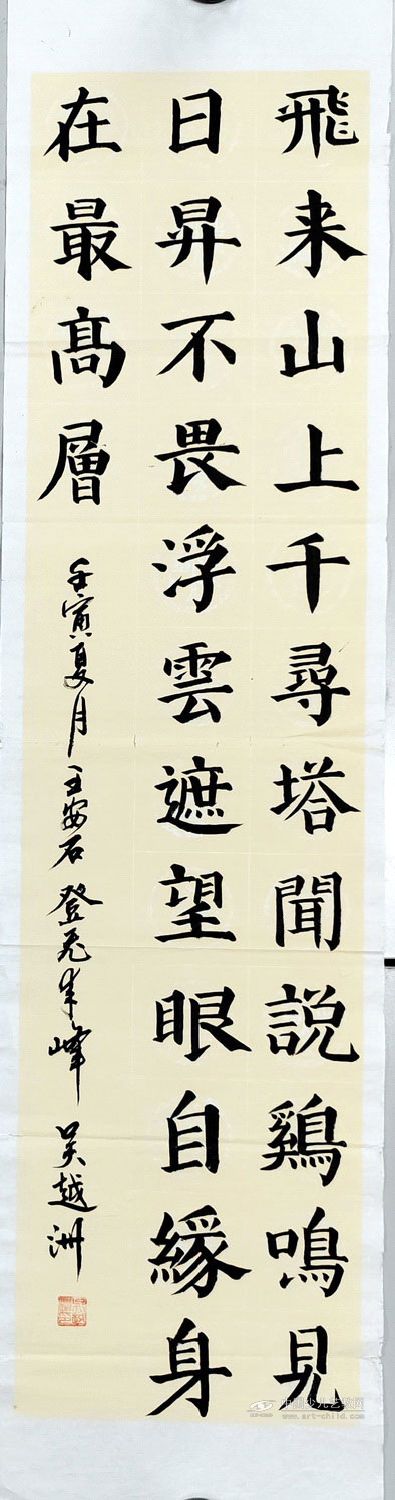 飛来山上千尋塔聞説鷄鳴見
日昇不畏浮雲遮望眼自緣身
在最高層
壬寅夏月王安石登飛来峰 吴越洲
中国少儿艺教网
www.art-child.com